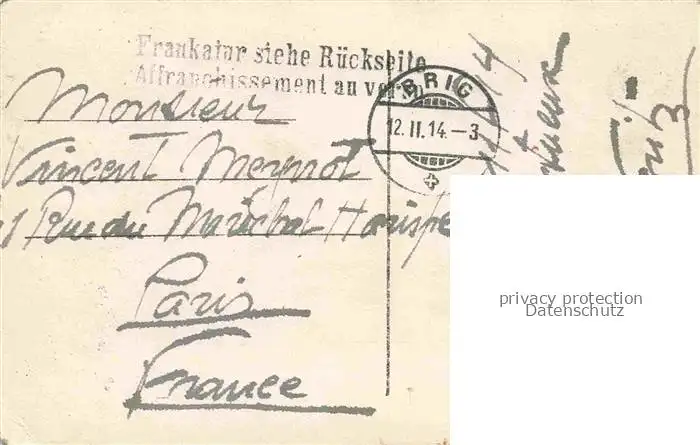 Frankatur siehe Rückseite
Affranchissement au verso
BRIG
12. II. 14. – 3
Monsieur
Vincent Meyrot
Rue du Maréchal Harispe
Paris
France
privacy protection
Datenschutz